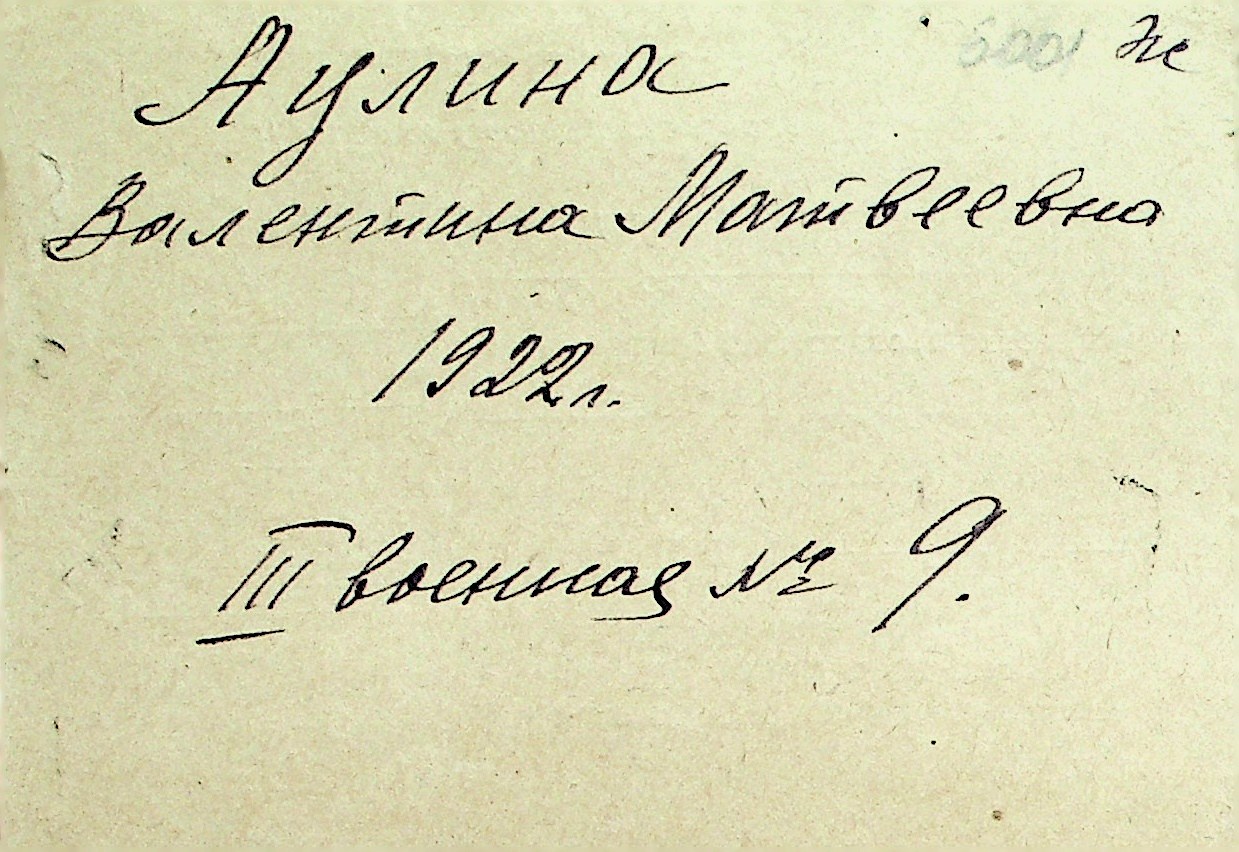 Аулина
Валентина Матвеевна
1922г.
III военная № 9.